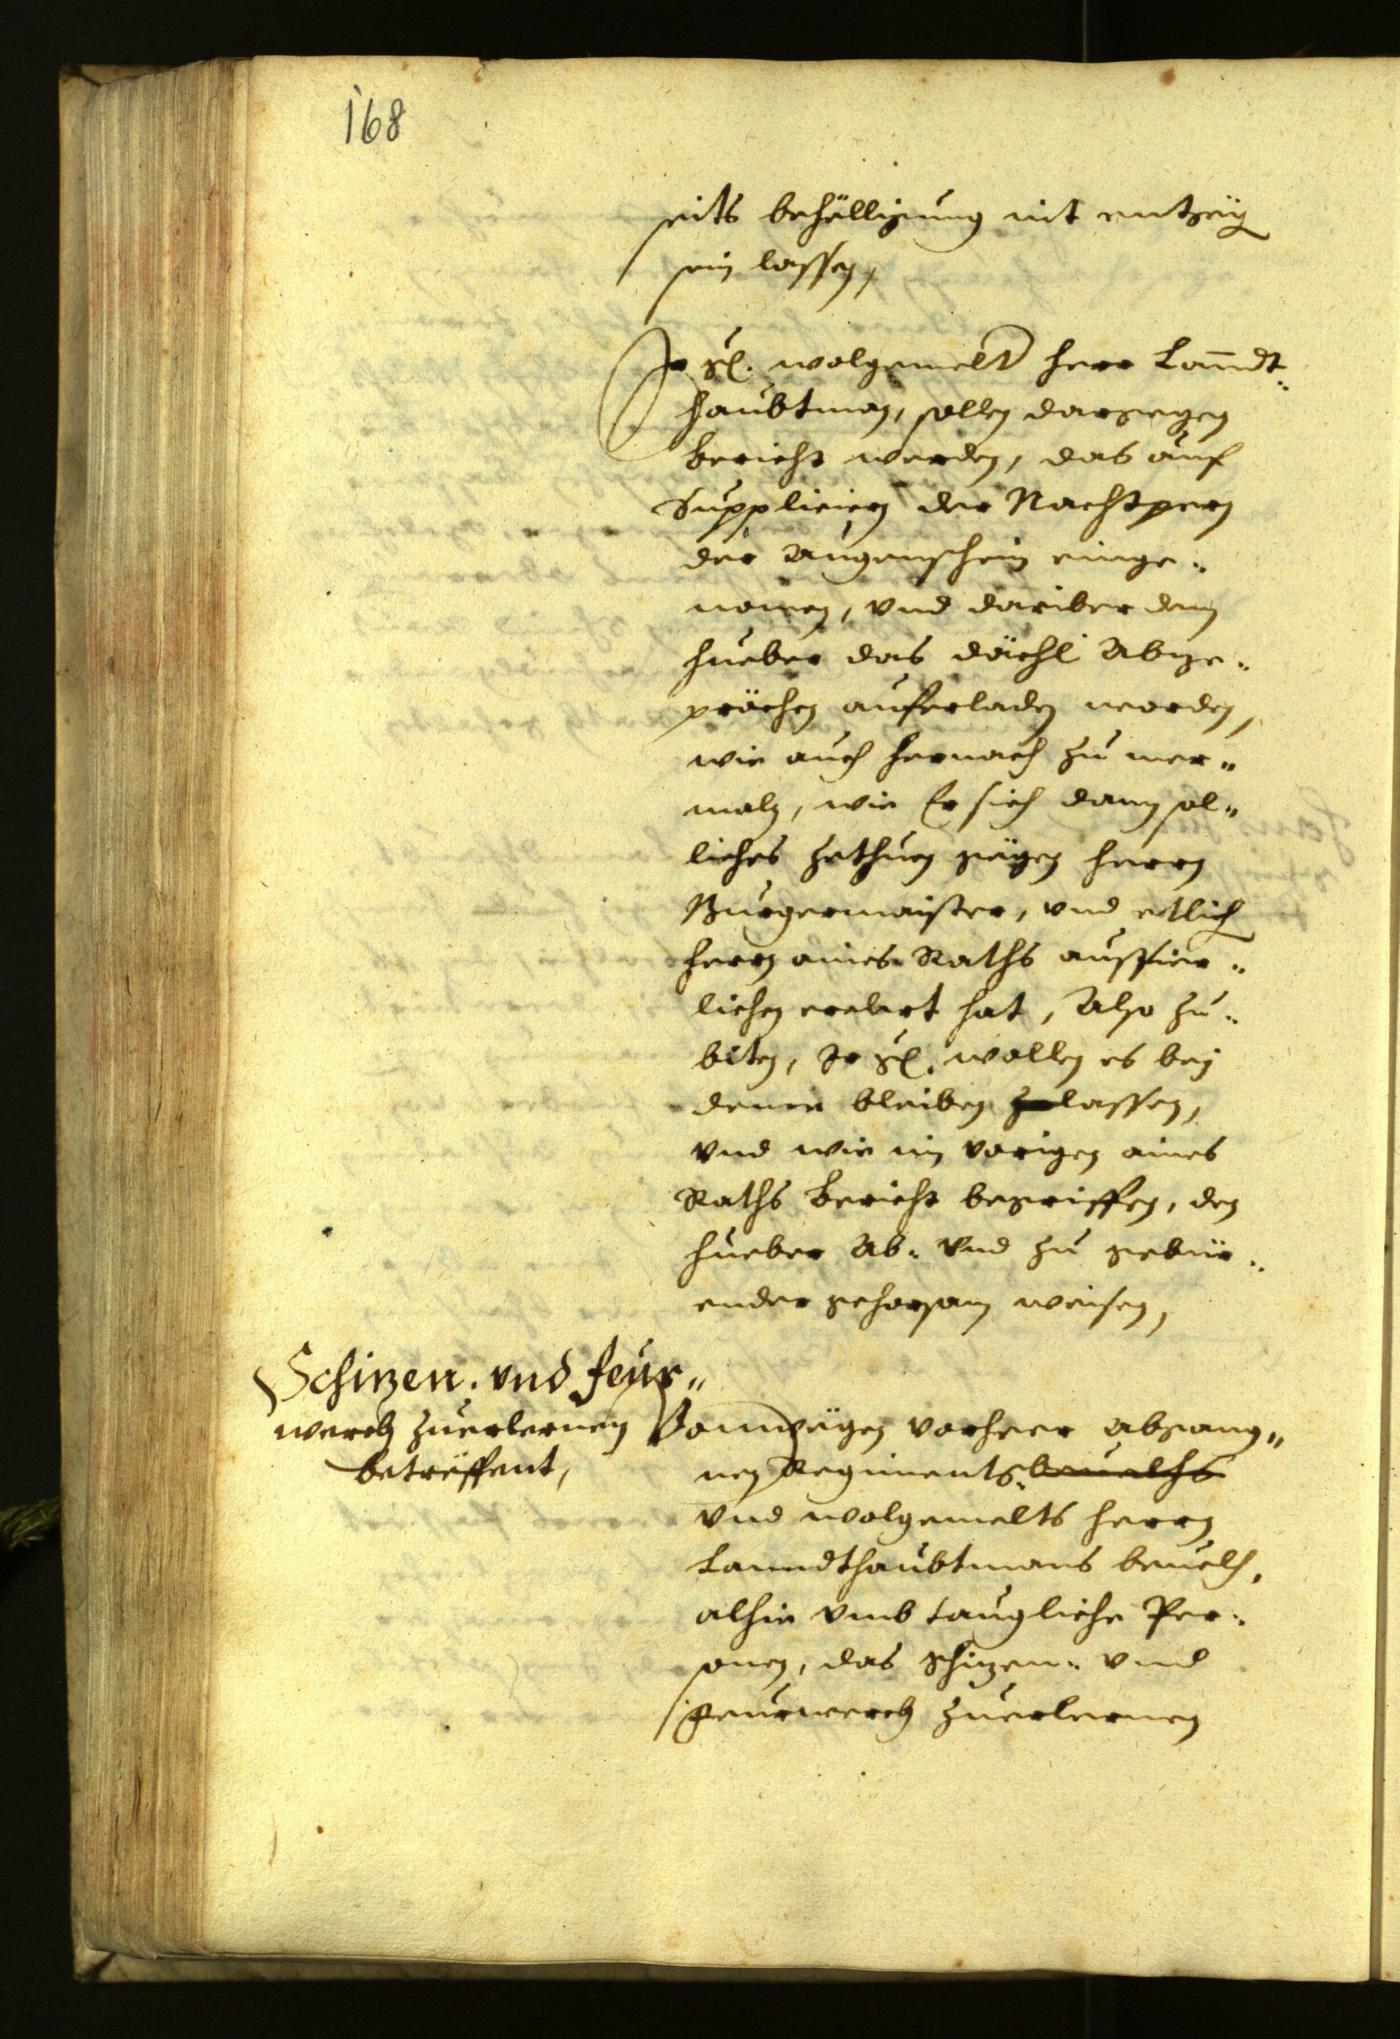 168
seits behälligung nit entgeg
sein lassen,
Ir Gl. wolgemelt herr Lanndt„
haubtman, sollen dargegen
bericht werden, das auf
Supplicirn der Nachtpern
der Augenschein einge„
nomen, vnd dariber dem
Hueber das dächl Abze„
prächen auferladen worden,
wie auch hernach zu mer„
maln, wie Er sich dann sol„
liches zethuen gegen herrn
Burgermaister, vnd etlich
herrn aines Raths ausfier„
lichen erclert hat, Also zu„
biten, Ir Gl. wollen es bey
deme bleiben zelassen,
vnd wie im vorigen aines
Raths bericht begriffen, den
Hueber Ab„ vnd zu gebür„
ender gehorsam weisen,
Schizen„ vnd feur„
werch zuerlernen
betreffent,
Vonwegen vorheer abgang„
nen Regiments beuelchs
vnd wolgemelts herrn
Lanndthaubtmans beuelch,
alhie vmb taugliche Per„
sonen, das Schizen„ vnd
feurwerch zuerlernen